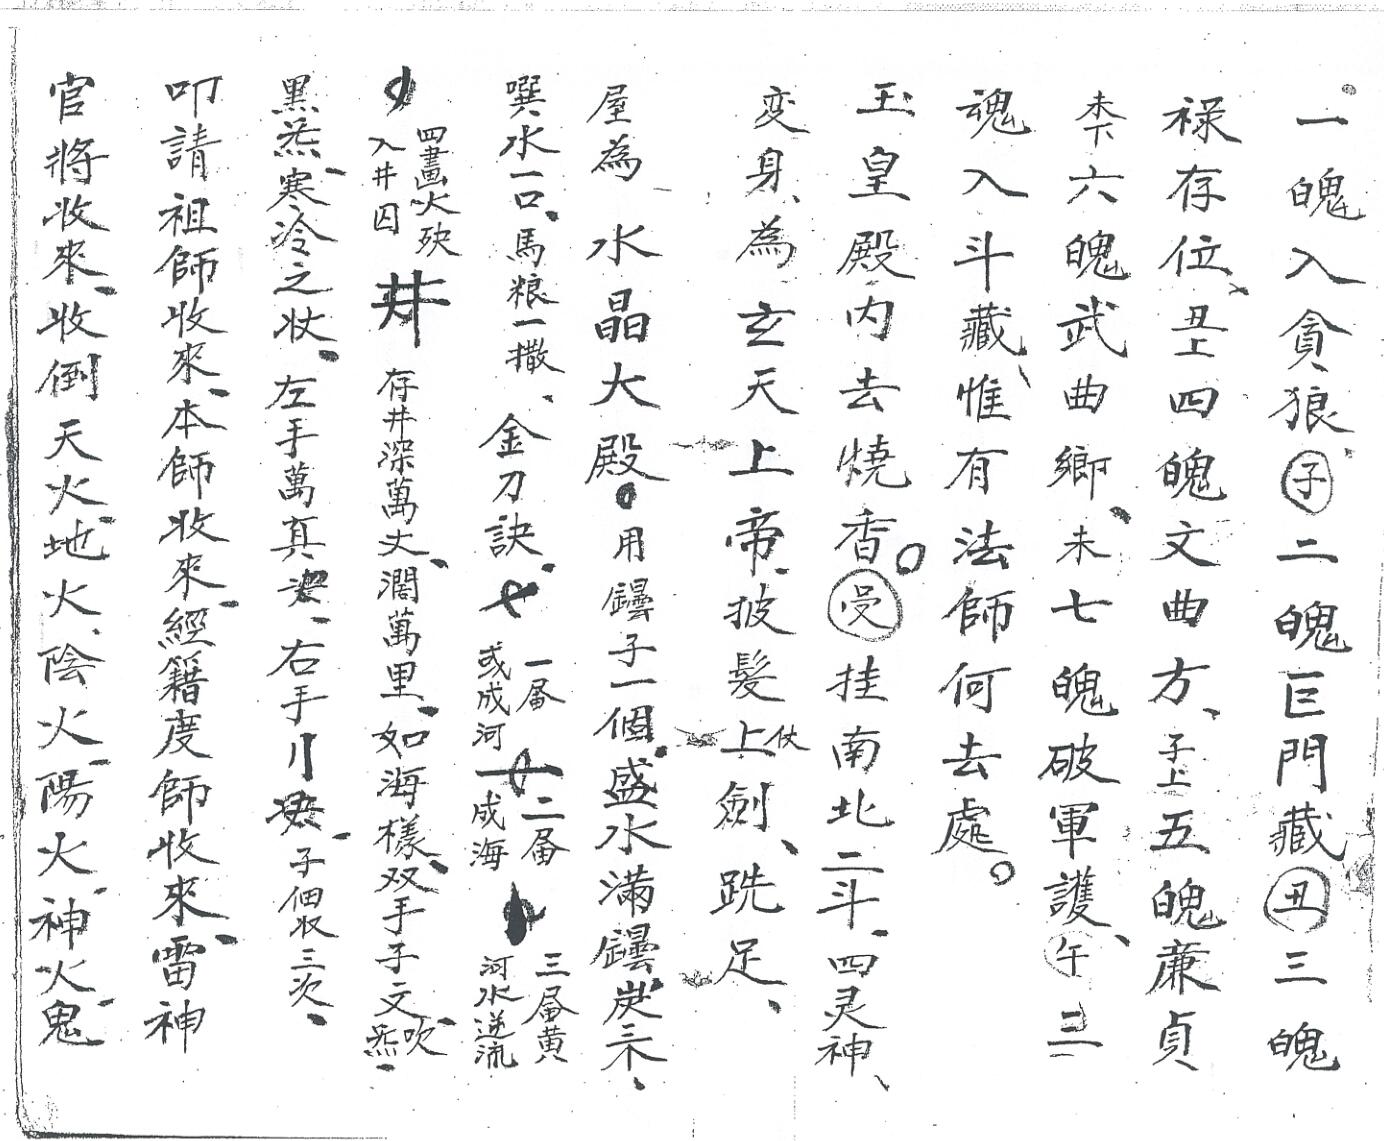 一魄入貪狼、子二魄巨門藏丑三魄
祿存位、丑上四魄文曲方、子上五魄廉貞
未下六魄武曲鄉、未七魄破軍護、午三
魂入斗藏、惟有法師何去處。
玉皇殿内去燒香。受挂南北二斗、四灵神、
变身、為玄天上帝、披髮上仗劍、跣足、
屋為水晶大殿。用鐔子一個、盛水滿鐔、炭三不、
噀水一口、馬粮一撒、金刀訣、一届或成河二届成海三届黄河水逆流
四畫火砄入井囚井存井深萬丈、濶萬里、如海樣、双手子文、吹炁、
黑炁、寒冷之状、左手萬真、右手子佃收三次、
叩請祖師收來、本師收來、經籍度師收來、雷神
官將收來、收倒天火、地火、陰火、陽火、神火、鬼